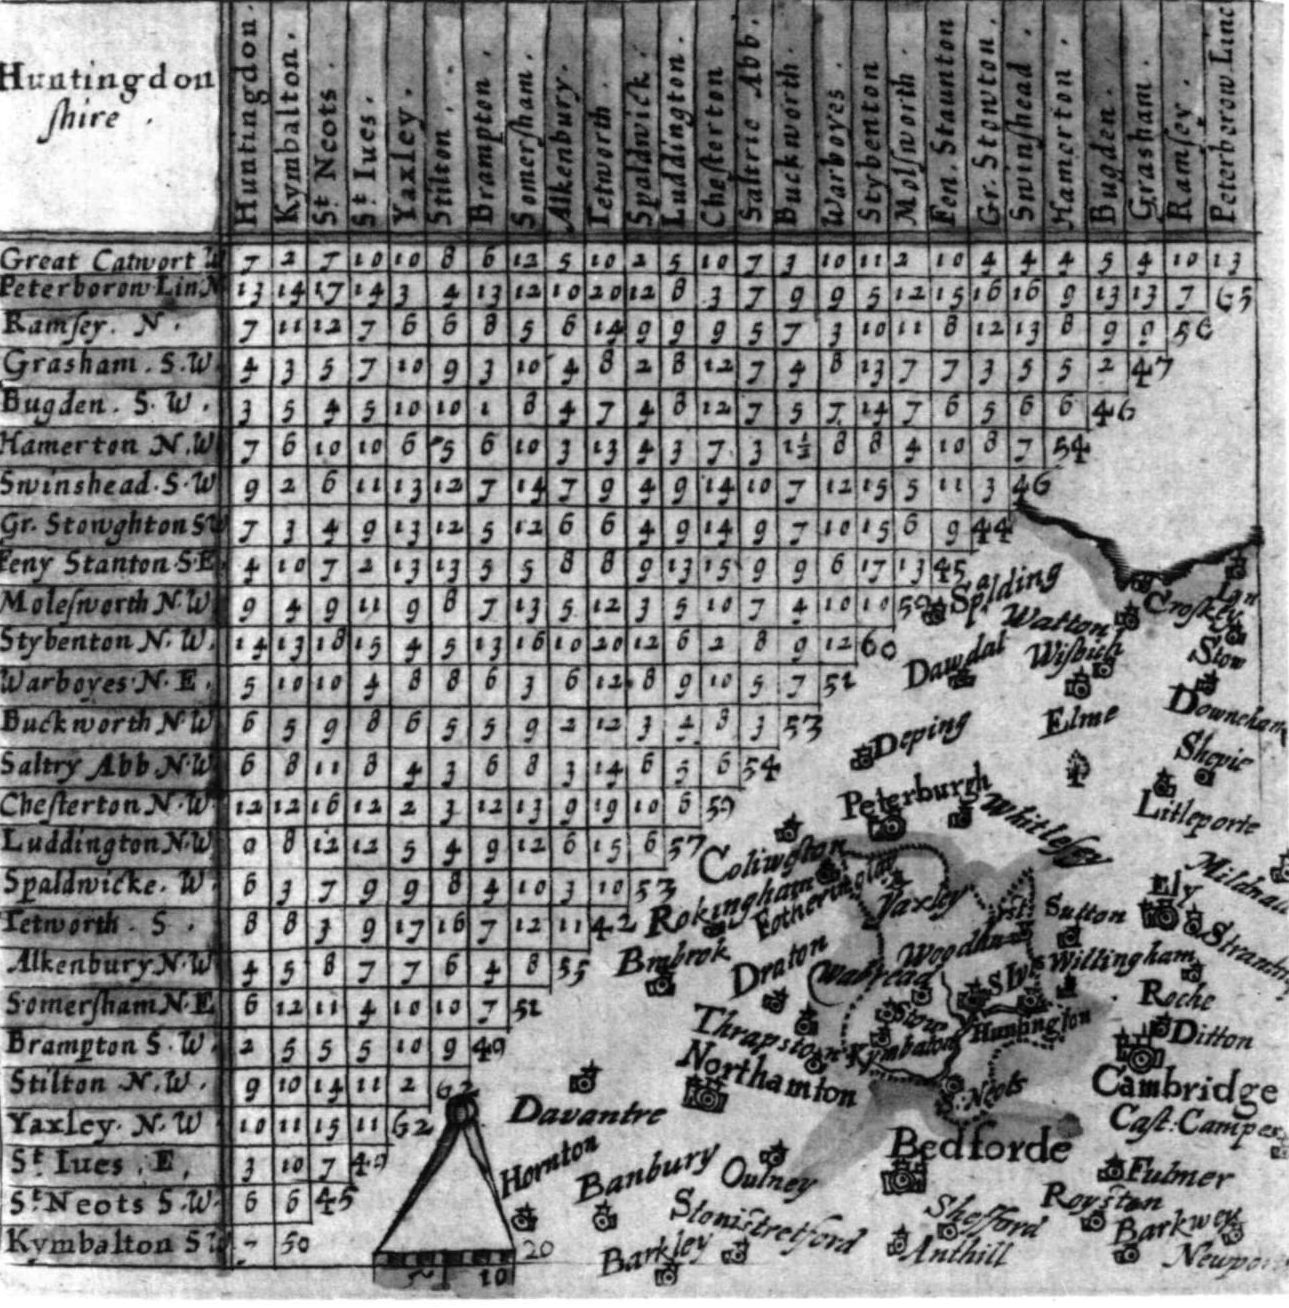 Huntingdon
shire .
Huntingdon.
Kymbalton.
St Neots.
St Iues.
Yaxley.
Stilton.
Brampton.
Somersham.
Alkenbury.
Tetworth.
Spaldwick.
Luddington.
Chesterton
Saltrie Abb.
Buckworth.
Warboyes.
Stybenton
Molsworth.
Fen. Staunton
Gr. Stowton.
Swinshead.
Hamerton.
Bugden.
Grasham.
Ramsey.
Peterborow Linc
Great Catwort W 7 2 7 10 10 8 6 12 5 10 2 5 10 7 3 10 11 2 10 4 4 4 5 4 10 13
Peterborow Lin N 13 14 17 14 3 4 13 12 10 20 12 8 3 7 9 9 5 12 15 16 16 9 13 13 7 65
Ramsey. N. 7 11 12 7 6 6 8 5 6 14 9 9 9 5 7 3 10 11 8 12 13 8 9 9 56
Grasham. S.W. 4 3 5 7 10 9 3 10 4 8 2 8 12 7 4 8 13 7 7 3 5 5 2 47
Bugden. S. W. 3 5 4 5 10 10 1 8 4 7 4 8 12 7 5 7 14 7 6 5 6 6 46
Hamerton N.W 7 6 10 10 6 5 6 10 3 13 4 3 7 3 1½ 8 8 4 10 8 7 54
Swinshead. S.W 9 2 6 11 13 12 7 14 7 9 4 9 14 10 7 12 15 5 11 3 46
Gr. Stowghton S W 7 3 4 9 13 12 5 12 6 6 4 9 14 9 7 10 15 6 9 44
Feny Stanton S.E 4 10 7 2 13 13 5 5 8 8 9 13 15 9 9 6 17 13 45
Molesworth N.W 9 4 9 11 9 8 7 13 5 12 3 5 10 7 4 10 10 50
Stybenton N. W. 14 13 18 15 4 5 13 16 10 20 12 6 2 8 9 12 60
Warboyes N. E. 5 10 10 4 8 8 6 3 6 12 8 9 10 5 7 51
Buckworth N W 6 5 9 8 6 5 5 9 2 12 3 4 8 3 53
Saltry Abb N.W 6 8 11 8 4 3 6 8 3 14 6 5 6 54
Chesterton N.W. 12 12 16 12 2 3 12 13 9 19 10 6 59
Luddington N.W 9 8 12 12 5 4 9 12 6 15 6 57
Spaldwicke. W. 6 3 7 9 9 8 4 10 3 10 53
Tetworth. S. 8 8 3 9 17 16 7 12 11 42
Alkenbury N.W 4 5 8 7 7 6 4 8 55
Somersham N.E 6 12 11 4 10 10 7 51
Brampton S.W. 2 5 5 5 10 9 49
Stilton N. W. 9 10 14 11 2 62
Yaxley. N. W 10 11 15 11 62
St Iues. E. 3 10 7 49
St Neots S.W. 6 6 45
Kymbalton S W 7 50
10
20
Spalding
Lyn
Croskey
Watton
Wisbich
Stow
Dawdal
Downeham
Elme
Deping
Shepie
Peterburgh
Whitlesey
Litleporte
Coliweston
Mildnall
Rokingham
Fotheringay
Yaxley
Ely
Sutton
Brubrok
Draton
Walbread
Willingham
S Iues
Roche
Thrapston
Stow
Huntington
Ditton
Kymbalton
Northamton
Cambridge
Davantre
S. Neots
Cast: Campes
Hornton
Bedforde
Banbury
Oulney
Fulmer
Royston
Stonistretford
Shefford
Barkwey
Barkley
Anthill
Newport